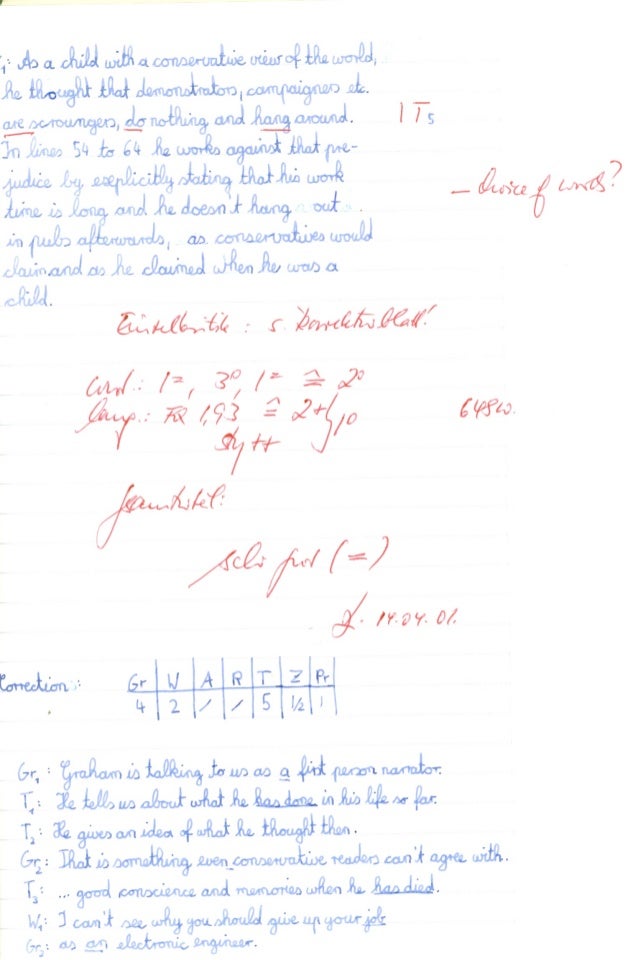 : As a child with a conservative view of the world,
he thought that demonstrators, campaigners etc.
are scroungers, do nothing and hang around. 1 T5
In lines 54 to 64 he works against that pre-
judice by explicitly stating that his work
time is long and he doesn't hang out
in pubs afterwards, as conservatives would
claim and as he claimed when he was a
child.
– choice of words?
Einzelkritik: s. Korrekturblatt!
1=, 3°, 1= ≙ 2°
FQ 1,93 ≙ 2+ 648 W.
Gesamturteil:
sehr gut (=)
14.04.01.
Correction:
Gr W A R T Z Pr
4 2 / / 5 1/2 1
Gr1: Graham is talking to us as a first person narrator.
T1: He tells us about what he has done in his life so far.
T2: He gives an idea of what he thought then.
Gr2: That is something even conservative readers can't agree with.
T3: ... good conscience and memories when he has died.
W1: I can't see why you should give up your job
Gr3: as an electronic engineer.